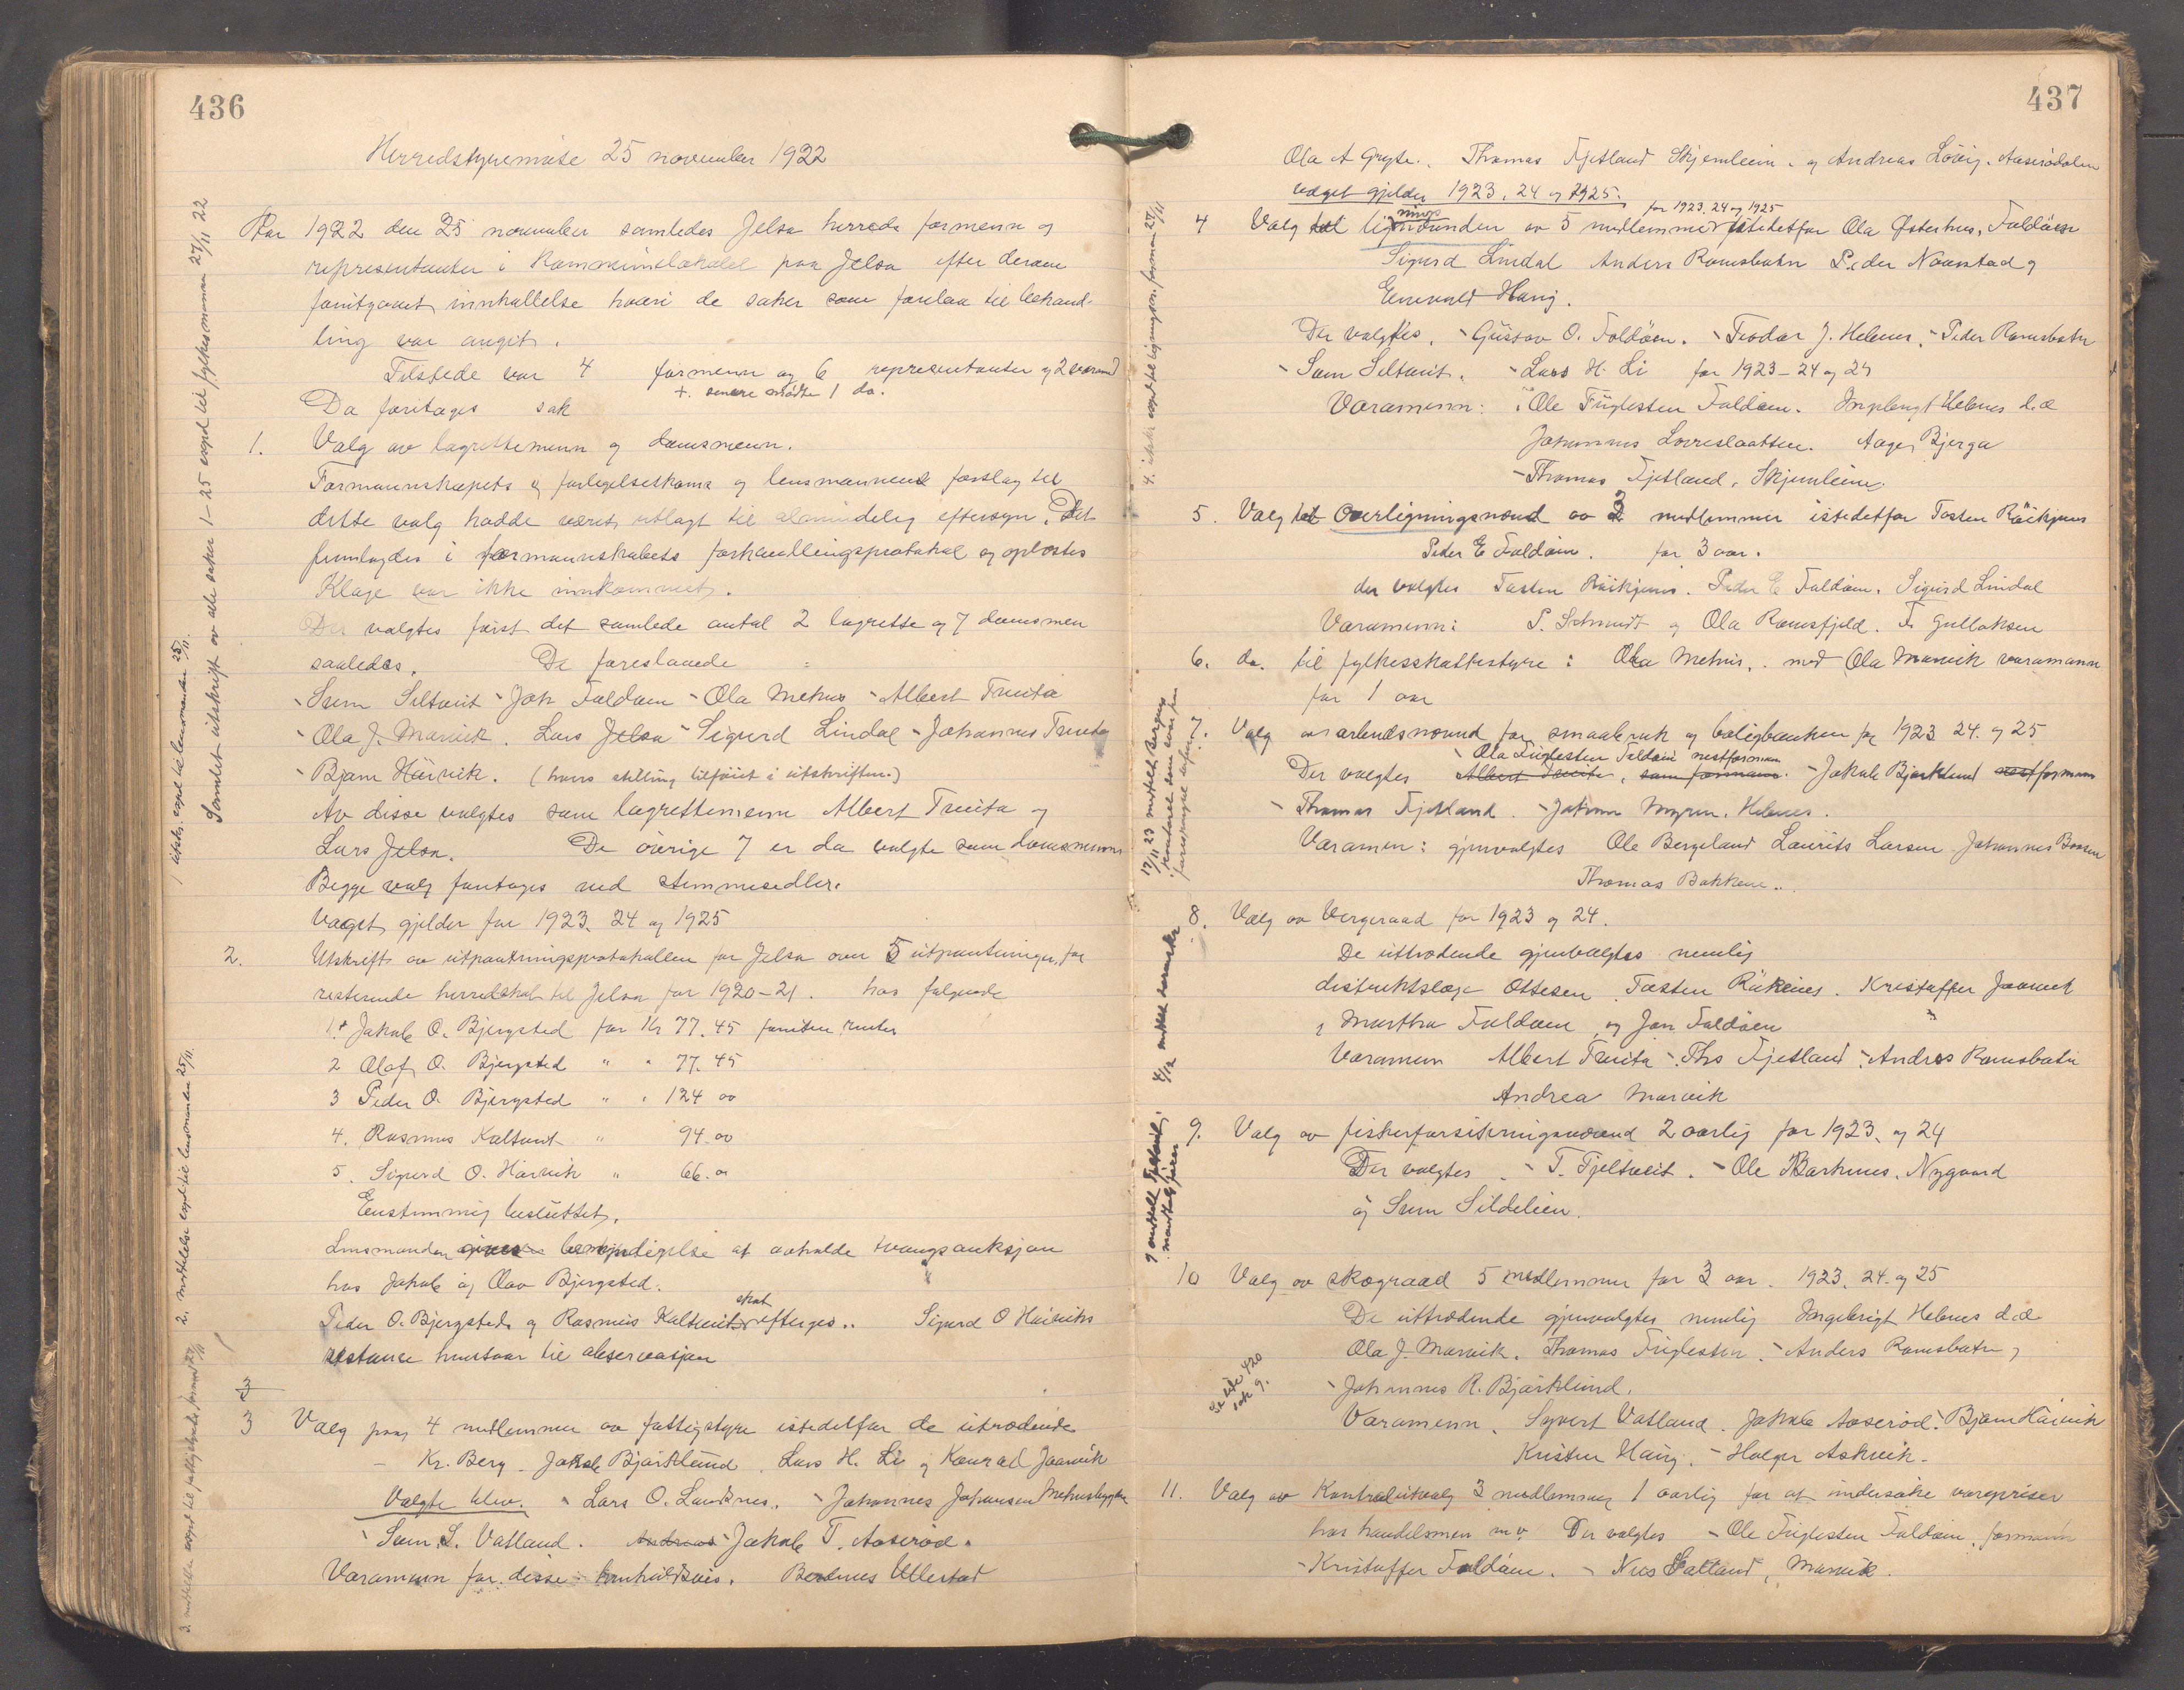 436
Herredstyremøte 25 november 1922
Aar 1922 den 25 november samledes Jelsa herreds formenn og
representanter i Kommunelokalet paa Jelsa efter derom
foritgaaet innkallelse hvori de saker som forelaa til behand-
ling var angit.
Tilstede var 4 formenn og 6 representanter og 2 varamd
+ senere møtte 1 do.
Da foretages sak
1. Valg av lagrettemenn og domsmenn.
Formannskapets og forlegelseskoms og lensmannens forslag til
dette valg hadde været utlagt til almindelig eftersyn. Det
fremlagdes i formannskabets forhandlingsprotokol og oplæstes
Klage var ikke innkommet.
Der valgtes først det samlede antal 2 lagrette og 7 domsmen
saaledes. De foreslaaede
- Søren Siltveit - Joh Foldøen - Ola Mehus - Albert Tveita
- Ola J. Marvik. Lars Jelsa - Sigurd Lindal - Johannes Tveita
- Bjarn Håivik. (hans stilling tilføiet i utskriften.)
Av disse valgtes som lagrettemenn Albert Tveita og
Lars Jelsa. De øvrige 7 er da valgte som domsmenn
Begge valg foretages ved stemmesedler.
Valget gjelder for 1923. 24 og 1925
2. Utskrift av utpantningsprotokollen for Jelsa over 5 utpantninger for
resterende herredskat til Jelsa for 1920-21. hos følgende
1. Jakob O. Bjergsted for Kr 77.45 foruten renter
2 Olaf O. Bjergsted " " 77.45
3 Peder O. Bjergsted " " 124 00
4. Rasmus Kaltveit " 94.00
5. Sigurd O. Håivik " 66.00
Enstemmig besluttet.
Lensmanden gives bemyndigelse at avholde tvangsauksjon
hos Jakob og Olav Bjergsted.
Peder O. Bjergsteds og Rasmus Kaltveits skat efterges.. Sigurd O Håiviks
restanse henstaar til observasjon
3
3 Valg paa 4 medlemmer av fattigstyre istedetfor de utrædende
- Kr. Berg - Jakob Bjørklund. Lars H. Li og Konrad Jaarvik
Valgte blev. - Lars O. Landsnes. - Johannes Johansen Mehusbygden
- Søren S. Vatland. Andreas - Jakob T. Aaserød.
Varamenn for disse henholdsvis. Berdines Ullestad
Samlet utskrift av alle saker 1-25 exped til fylkesmannen 27/11 22
1 utskr. exped til lensmanden 25/11.
2. meddelelse exped til lensmanden 25/11.
437
Ola A Gryte. Thomas Fjetland Skjemleim. og Andreas Løvig. Aaserødalen
valget gjelder 1923. 24 og 1925.
4 Valg til ligningsnevnden av 5 medlemmer for 1923. 24 og 1925 istedetfor Ola Østerhus, Foldøen
Sigurd Lindal Anders Ramsbotn Peder Naavstad og
Enevald Haug.
Der valgtes. - Gustav O. Foldøen. - Teodor J. Helnes. - Peder Ramsbotn
- Søren Seltveit. - Lars H. Li for 1923-24 og 25
Varamenn: Ole Fuglesten Foldøen. Ingebrigt Helnes d.e.
Johannes Lovreslaatten. Aage Bjerga
- Thomas Fjetland, Skjemleim.
5. Valg til Overligningsnevnd av 3 medlemmer istedetfor Tosten Røikjenes
Peder E Foldøen. for 3 aar.
der valgtes Tosten Røikjenes. Peder E Foldøen. Sigurd Lindal
Varamenn: P. Schmidt og Ola Ramsfjeld. F. Gullaksen
6. do. til fylkesskattestyre: Ola Mehus. med Ola Marvik varamann
for 1 aar
7. Valg av arbeidsnevnd for smaabruk og boligbanken for 1923 24. og 25
- Ola Fuglesten Foldøen nestformann
Der valgtes Albert Tveita, som formann. - Jakob Bjørklund nestformann
- Thomas Fjetland. - Johan Myren, Helnes.
Varamen: gjenvalgtes Ole Bergeland Laurits Larsen Johannes Boasen
Thomas Bakken..
8. Valg av Vergeraad for 1923 og 24.
De uttrædende gjenvalgtes nemlig
distriktslæge Ottesen, Tosten Røikenes. Kristoffer Jaarvik
, Martha Foldøen og Jon Foldøen
Varamenn Albert Tveita - Ths Fjetland - Andres Ramsbotn
Andrea Marvik
9. Valg av fiskerforsikringsnevnd 2 aarlig for 1923 og 24
Der valgtes. - T. Tjeltveit. - Ole Barkenes. Nygaard
og Søren Sildelien.
10 Valg av skograad 5 medlemmer for 3 aar. 1923. 24. og 25
De uttrædende gjenvalgtes nemlig Ingebrigt Helnes d.e.
Ola J. Marvik. Thomas Fuglesten. - Anders Ramsbotn,
- Johannes R. Bjørklund.
Varamenn. Syvert Vatland. Jakob Aaserød. Bjarn Håivik
Kristen Haug. - Holger Askvik.
Se side 420
sak 9.
11. Valg av Kontrolutvalg 3 medlemmer 1 aarlig for at undersøke varepriser
hos handelsmen m.v. Der valgtes - Ole Fuglesten Foldøen, formann
- Kristoffer Foldøen. - Nils Vatland, Marvik.